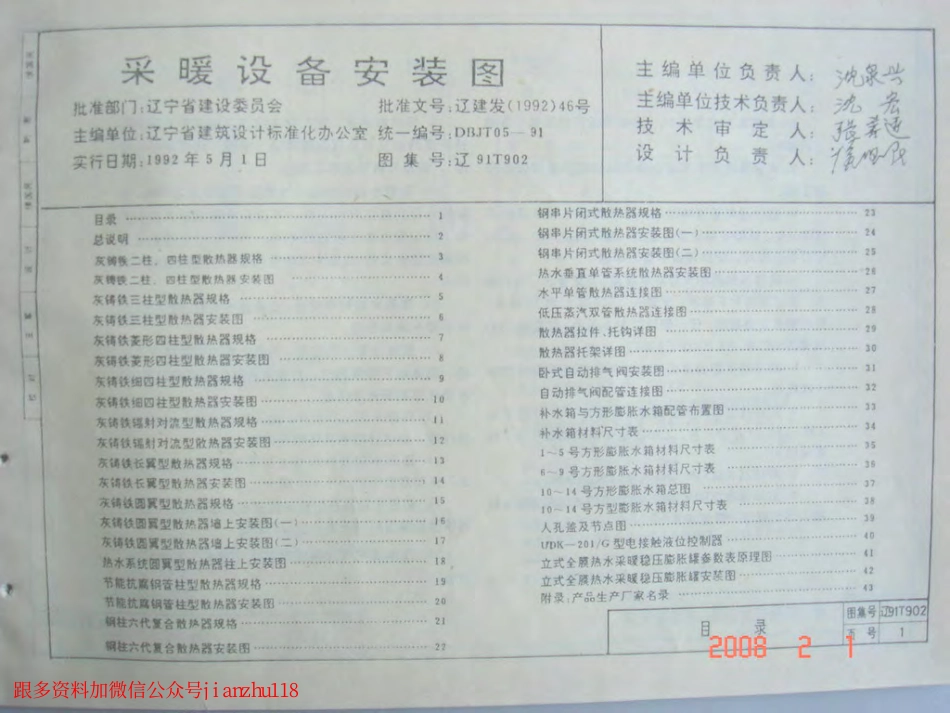 采暖设备安装图
批准部门:辽宁省建设委员会 批准文号:辽建发(1992)46号
主编单位:辽宁省建筑设计标准化办公室 统一编号:DBJT05—91
实行日期:1992年5月1日 图集号:辽91T902
主编单位负责人:
主编单位技术负责人:
技术审定人:
设计负责人:
目录 1
总说明 2
灰铸铁二柱、四柱型散热器规格 3
灰铸铁二柱、四柱型散热器安装图 4
灰铸铁三柱型散热器规格 5
灰铸铁三柱型散热器安装图 6
灰铸铁菱形四柱型散热器规格 7
灰铸铁菱形四柱型散热器安装图 8
灰铸铁细四柱型散热器规格 9
灰铸铁细四柱型散热器安装图 10
灰铸铁辐射对流型散热器规格 11
灰铸铁辐射对流型散热器安装图 12
灰铸铁长翼型散热器规格 13
灰铸铁长翼型散热器安装图 14
灰铸铁圆翼型散热器规格 15
灰铸铁圆翼型散热器墙上安装图(一) 16
灰铸铁圆翼型散热器墙上安装图(二) 17
热水系统圆翼型散热器柱上安装图 18
节能抗腐钢管柱型散热器规格 19
节能抗腐钢管柱型散热器安装图 20
钢柱六代复合散热器规格 21
钢柱六代复合散热器安装图 22
钢串片闭式散热器规格 23
钢串片闭式散热器安装图(一) 24
钢串片闭式散热器安装图(二) 25
热水垂直单管系统散热器安装图 26
水平单管散热器连接图 27
低压蒸汽双管散热器连接图 28
散热器拉件、托钩详图 29
散热器托架详图 30
卧式自动排气阀安装图 31
自动排气阀配管连接图 32
补水箱与方形膨胀水箱配管布置图 33
补水箱材料尺寸表 34
1~5号方形膨胀水箱材料尺寸表 35
6~9号方形膨胀水箱材料尺寸表 36
10~14号方形膨胀水箱总图 37
10~14号方型膨胀水箱材料尺寸表 38
人孔盖及节点图 39
UDK—201/G型电接触液位控制器 40
立式全膜热水采暖稳压膨胀罐参数表原理图 41
立式全膜热水采暖稳压膨胀罐安装图 42
附录:产品生产厂家名录 43
目录
图集号 辽91T902
页号 1
2008 2 1
跟多资料加微信公众号jianzhu118